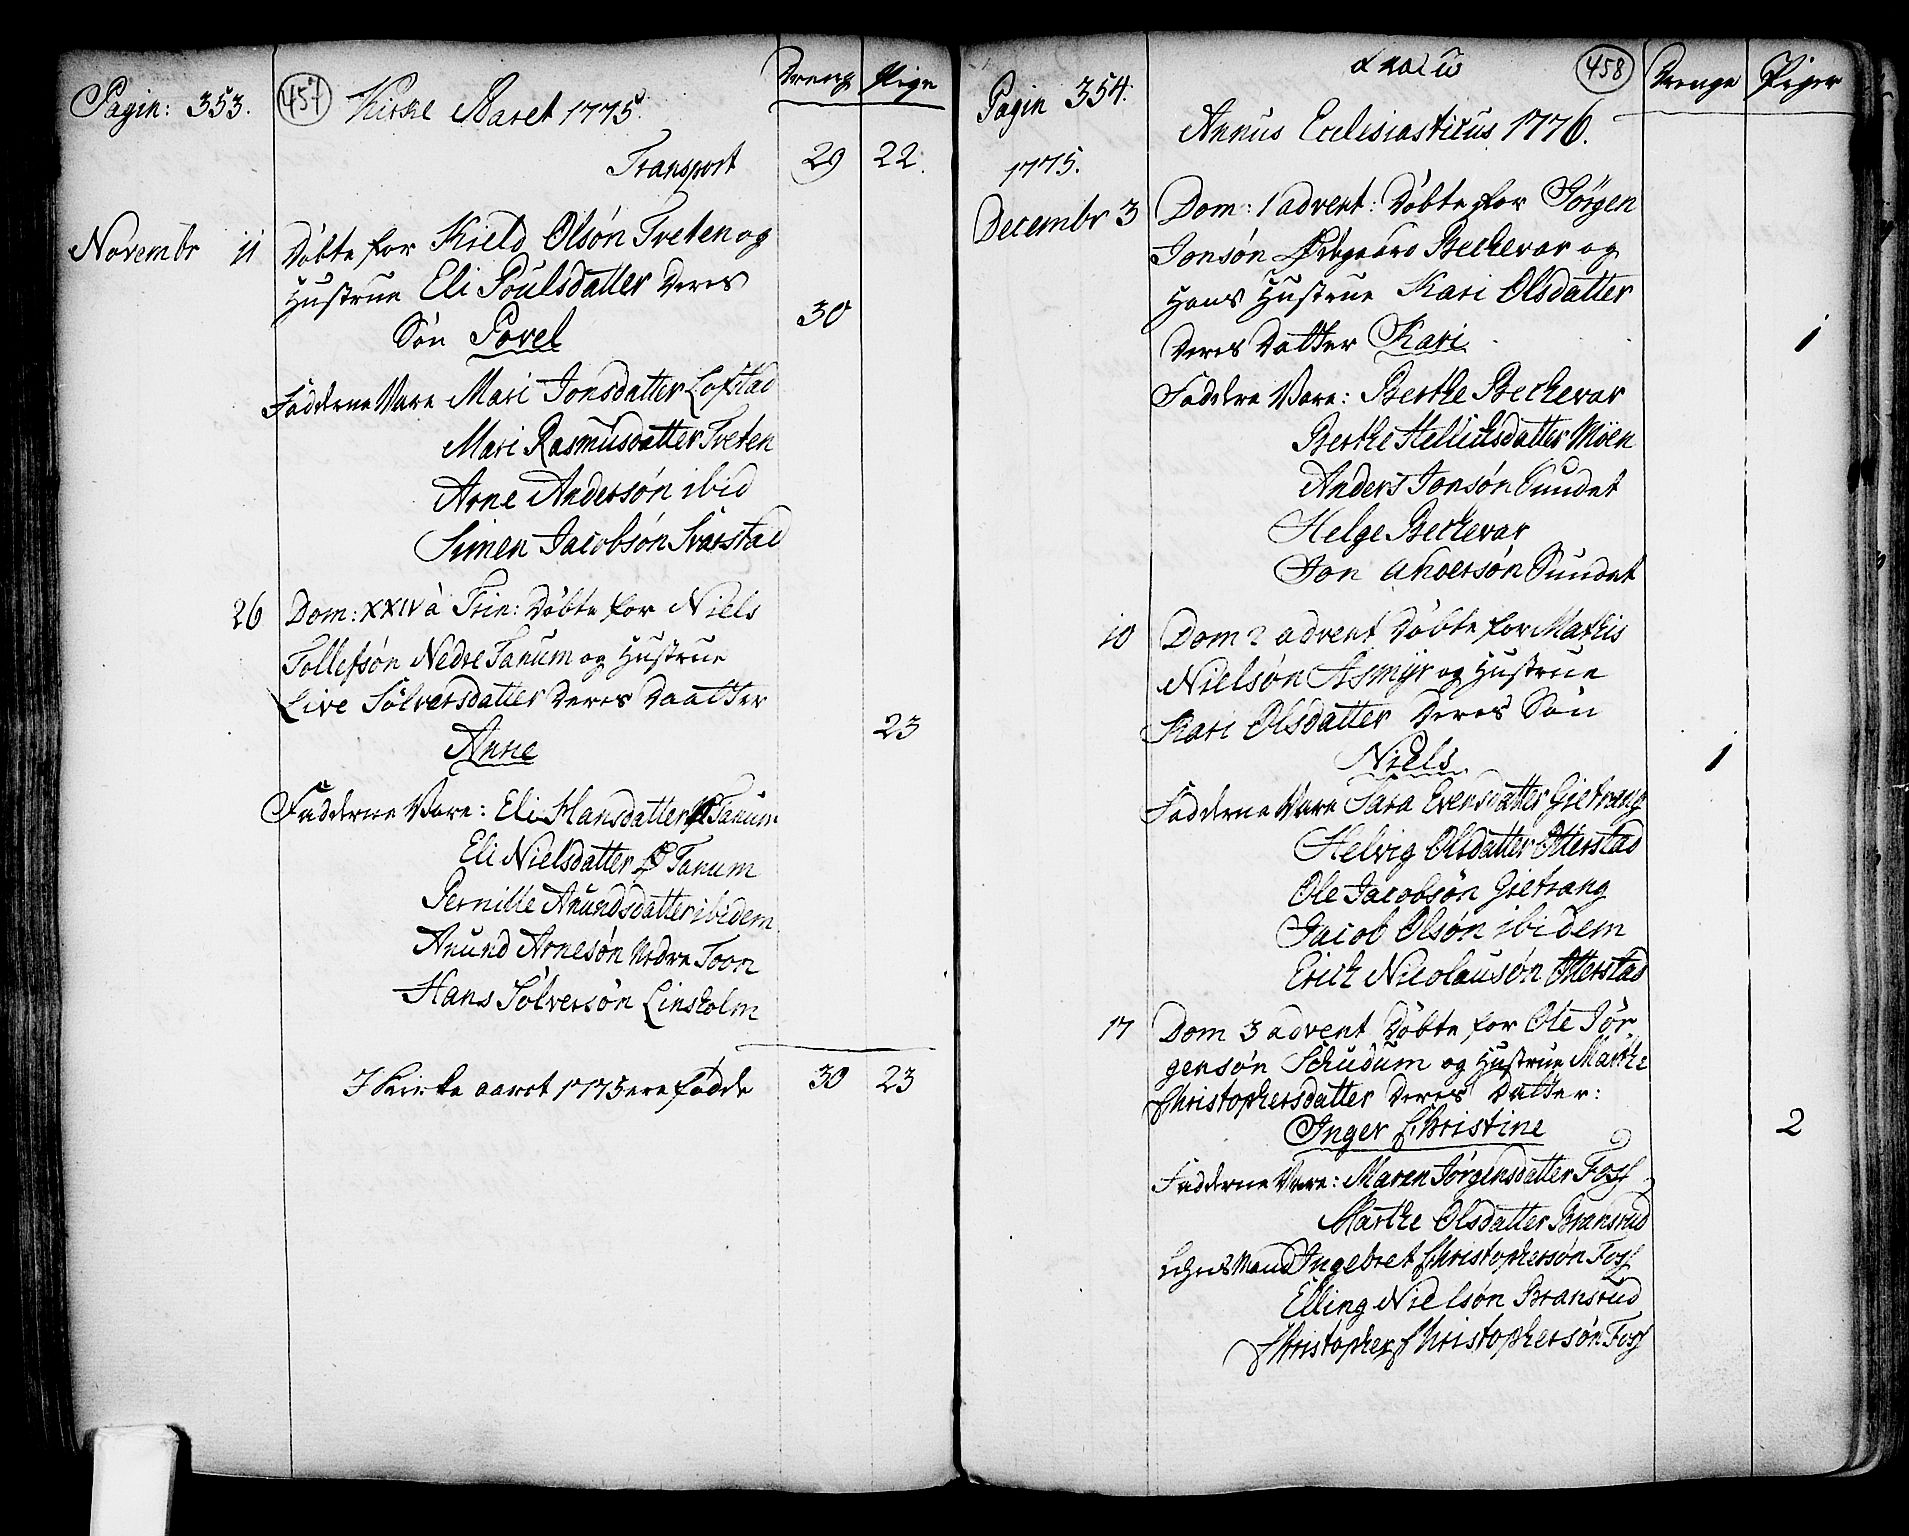 Pagin: 353.
457
Kirke Aaret 1775.
Dreng Pige
Transport 29 22.
Novembr 11 Döbte for Kield Olsön Tveten og
Hustrue Eli Poulsdatter Deres
Sön Povel 30
Fadderne Vare Mari Jonsdatter Lofstad
Mari Rasmusdatter Tveten
Arne Andersön ibid
Simen Jacobsön Svarstad
26 Dom: XXIV à Trin: Döbte for Niels
Tollefsön Nedre Tanum og Hustrue
Live Sölversdatter Deres Daatter
Anne 23
Fadderne Vare: Eli Hansdatter Tanum
Eli Nielsdatter Ø Tanum
Pernille Anundsdatter ibidem
Anund Arnesön Nedre Toon
Hans Sölversön Linsholm
I Kirke aaret 1775 ere födde 30 23
Pagin 354.
458
Drenge Piger
Annus Ecclesiasticus 1776.
1775.
Decembr 3 Dom: 1 advent: Döbte for Görgen
Jonsön Ødegaard Beckevar og
Hans Hustrue Kari Olsdatter
Deres Datter Kari 1
Faddere Vare: Berthe Beckevar
Berthe Helliksdatter Möen
Anders Jonsön Sundet
Helge Beckevar
Jon Andersön Sundet
10 Dom 2 advent Döbte for Mathis
Nielsön Asmyr og Hustrue
Kari Olsdatter Deres Sön
Niels 1
Fadderne Vare Sara Evensdatter Gietrang
Helvig Olsdatter Otterstad
Ole Jacobsön Gietrang
Jacob Olsön ibidem
Erich Nicolausön Otterstad
17 Dom 3 advent Döbte for Ole Jör
gensön Schudum og Hustrue Marthe
Christophersdatter Deres Datter:
Inger Christine 2
Fadderne Vare: Maren Jörgensdatter Foss
Marthe Olsdatter Bransrud
Ingebret Christophersön Foss
Elling Nielsön Bransrud
Christopher Christophersön Foss